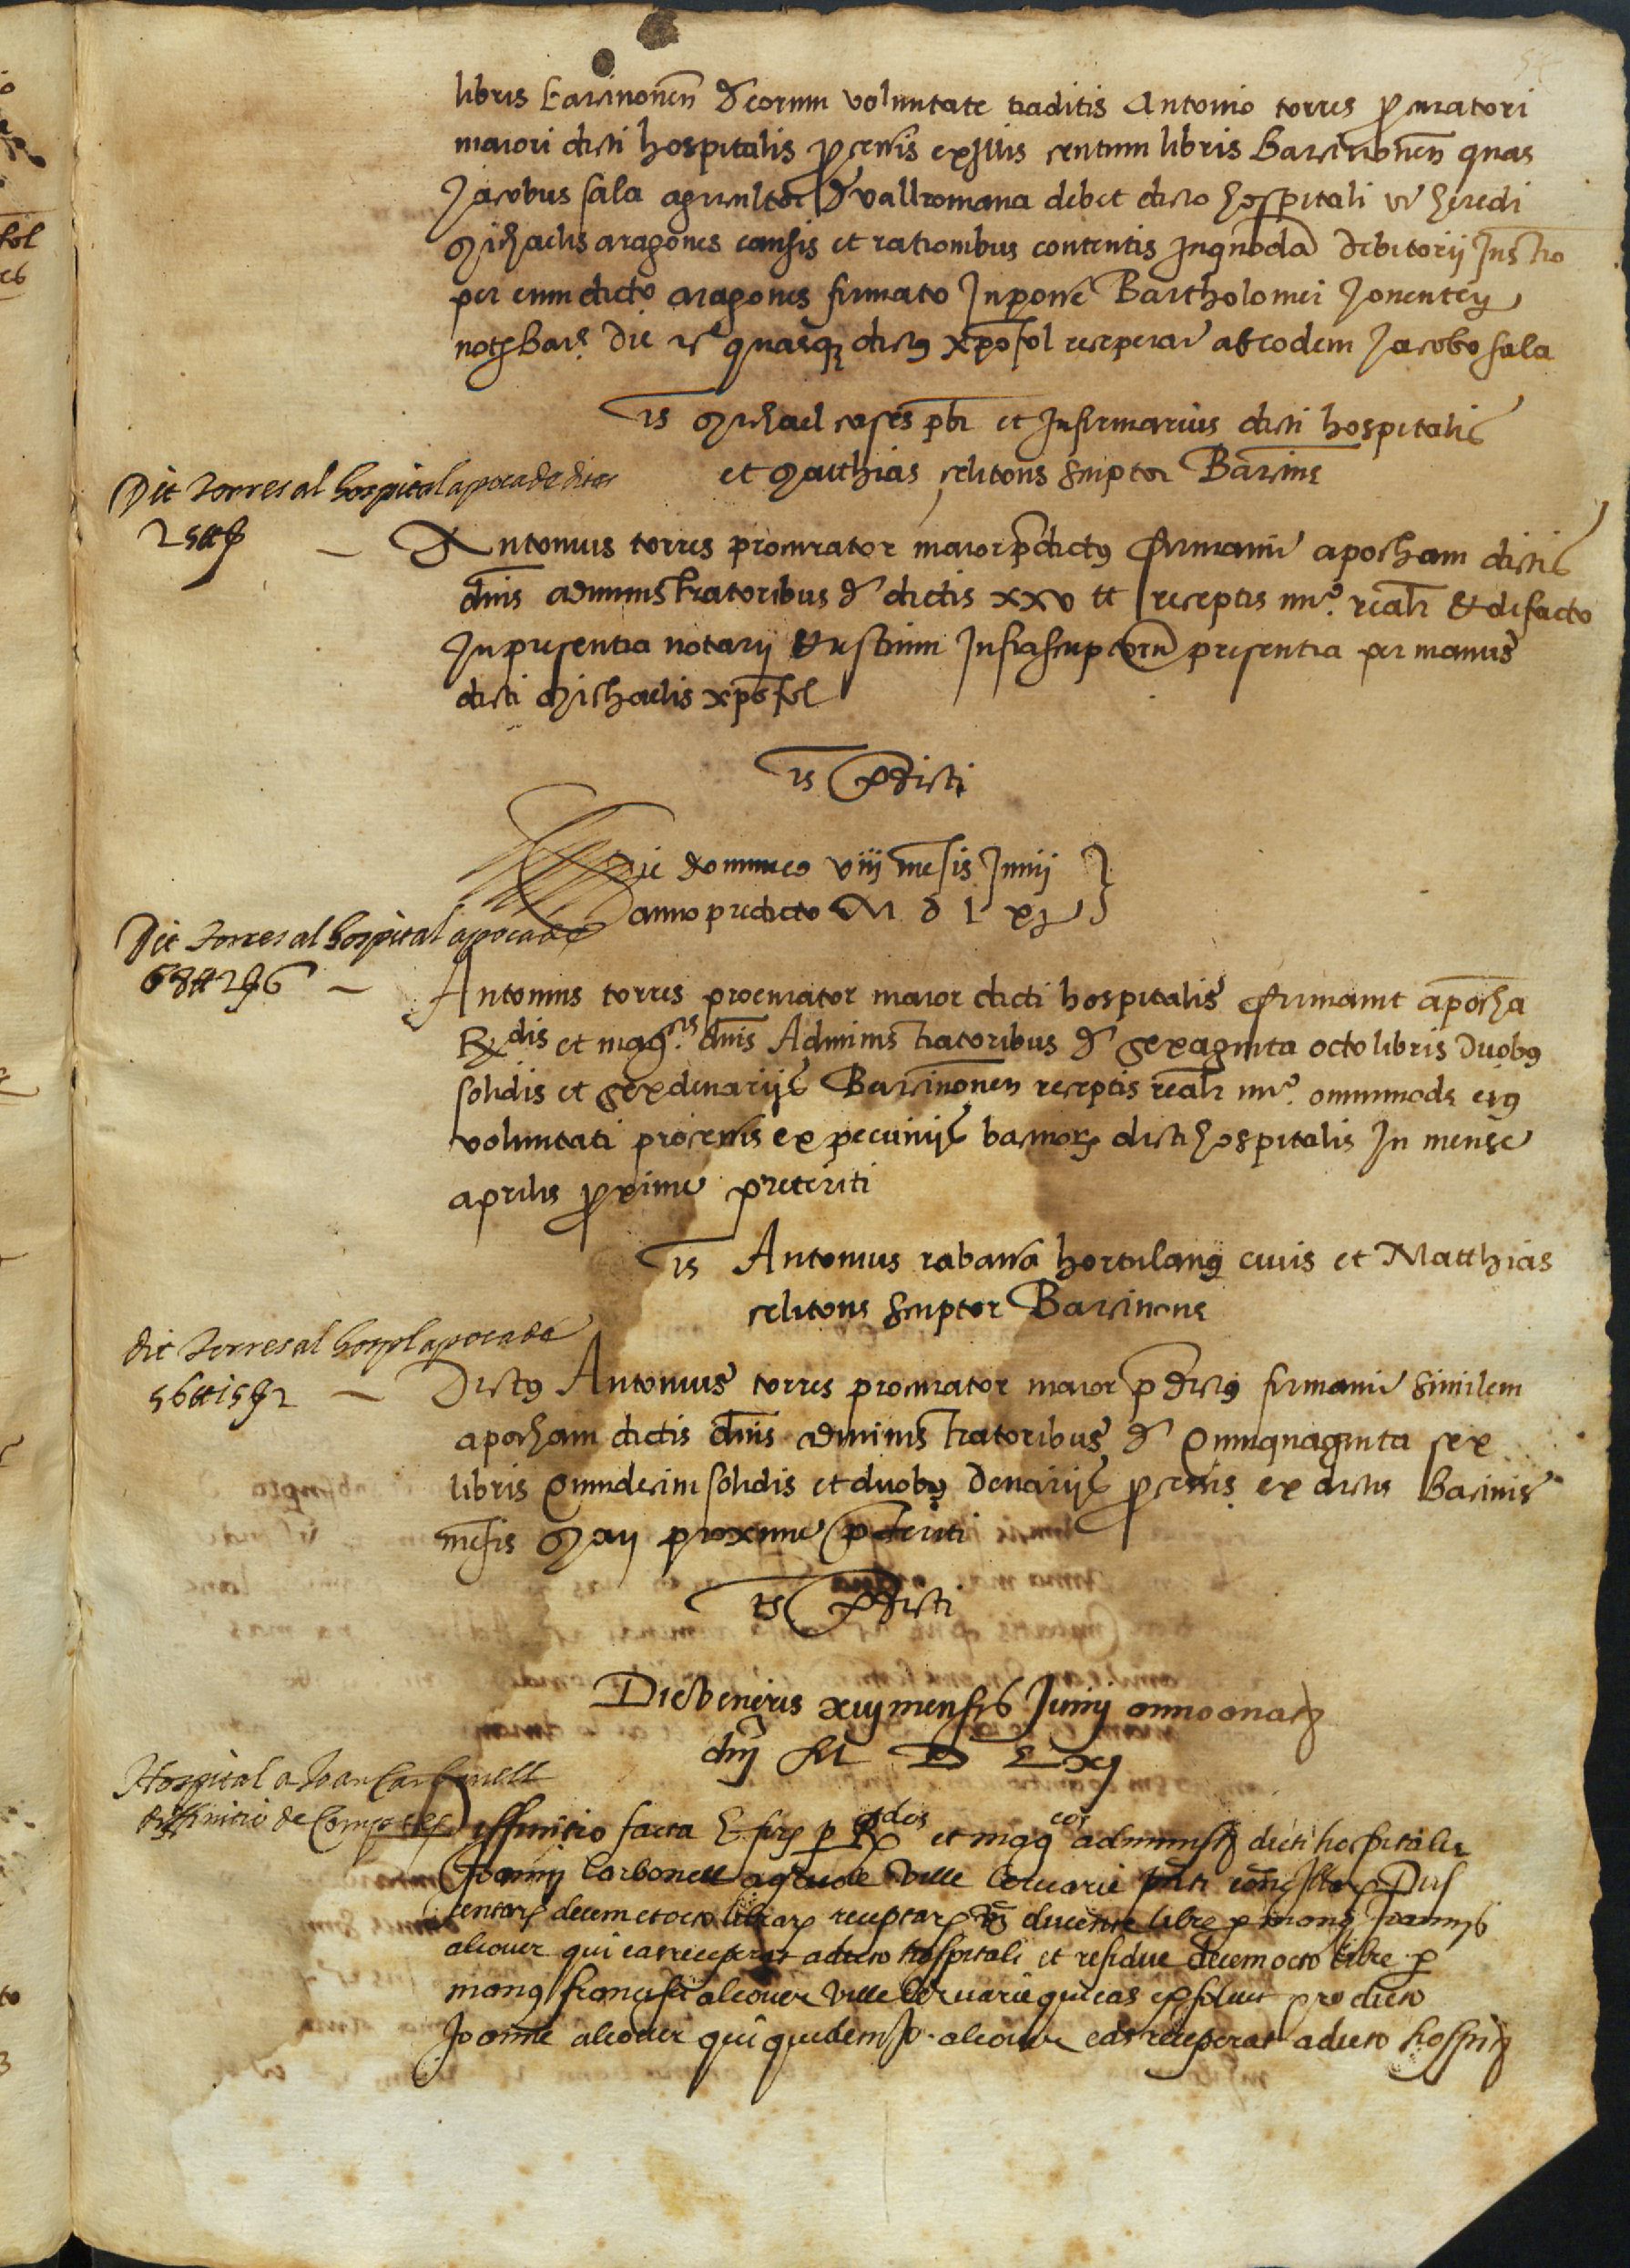 libris Barcinonen̄ de eorum voluntate traditis Antonio torres ꝓcuratori
maiori dicti hospitalis ꝓcessis ex illis centum libris Barcinonen̄ quas
Jacobus sala agricultor de vallromana debet dicto hospitali vt heredi
Michaelis aragones causis et rationibus contentis in quoda debitorij Instro
per eum dicto aragones firmato In posse Bartholomei
notm Barc. Die quasqz dictꝰ xpōfol receperat ab eodem Jacobo sala
Ts Michael pbr et Infirmarius dicti hospitalis
et Matthias celitons scriptor Barcine
Dit Torres al hospital apoca de dites
25 ₶ ß
Antonius torres procurator maior p̄dictꝰ firmauit apocham dictis
dnīs administratoribus de dictis xxv ₶ receptis nuº. realr̄ & de facto
In presentia notarij & testium Infrascriptorū presentia per manus
dicti Michaelis xpōfol
Ts p̄dicti
Die dominico viij mēsis Junij
anno predicto M D L xj
Dit Torres al hospital apoca de
68 ₶ 2 ß 6
Antonius torres procurator maior dicti hospitalis firmauit apocha
Rdis et magcis. dnīs Administratoribus de sexaginta octo libris Duobꝰ
solidis et sex denarijs Barcinonen̄ receptis realr̄ nuº. omnimode eiꝰ
voluntati processis ex pecunijs bacinorȝ dicti hospitalis In mense
aprilis ꝓxime preteriti
Ts Antonius rabassa hortulanꝰ ciuis et Matthias
celitons scriptor Barcinone
Dit Torres al hospl apoca de
56 ₶ 15 ß 2
Dictꝰ Antonius torres procurator maior p̄dictꝰ firmauit similem
apocham dictis dnīs administratoribus de Quinquaginta sex
libris Quindecim solidis et duobꝰ denarijs ꝓcessis ex dictis Bacinis
mēsis Maij proxime p̄teriti
Ts p̄dicti
Die veneris xiij mensis Junij anno a natȝ
dnj M D L xj
Hospital a Joan Carbonell
diffinitio de Comptes
Diffinitio facta p Rdos et magcos administȝ dicti hospitalis
Joannj Carbonell ville Ceruarie
centarȝ decem et octo librarȝ receptarȝ ducente libre p manꝰ Joannis
alcouer qui eas receperat a dicto hospitali et residue decem octo libre p
manꝰ francisci alcouer ville Ceruarie qui eas exsoluit pro dicto
Joanne alcouer qui quidem Jo. alcouer eas receperat a dicto hospitȝ